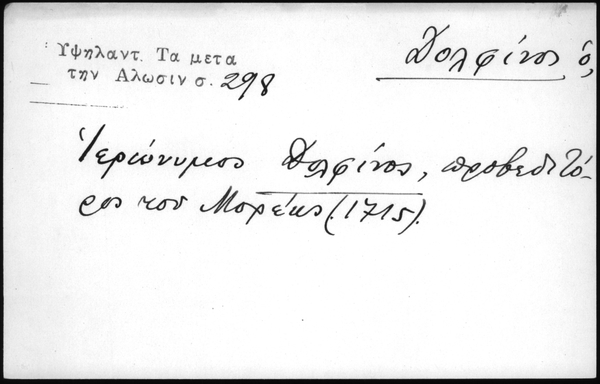 Υψηλαντ. Τα μετα
την Αλωσιν σ. 298
Δολφίνος ὁ,
Ἱερώνυμος Δολφίνος, προβεδιτό-
ρος του Μορέως (1715).